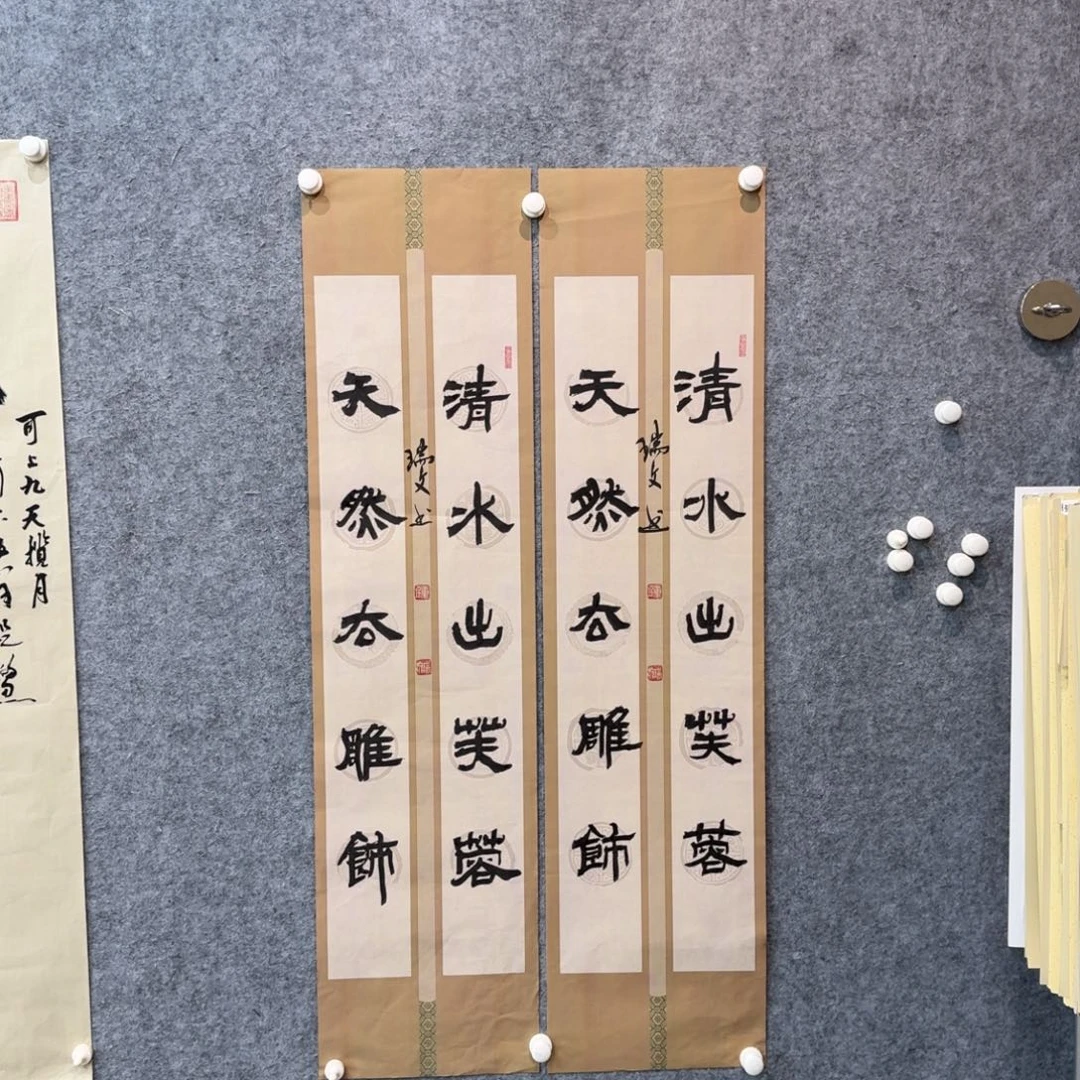 清水出芙蓉
天然去雕飾
瑞文书
清水出芙蓉
天然去雕飾
瑞文书
可上九天揽月